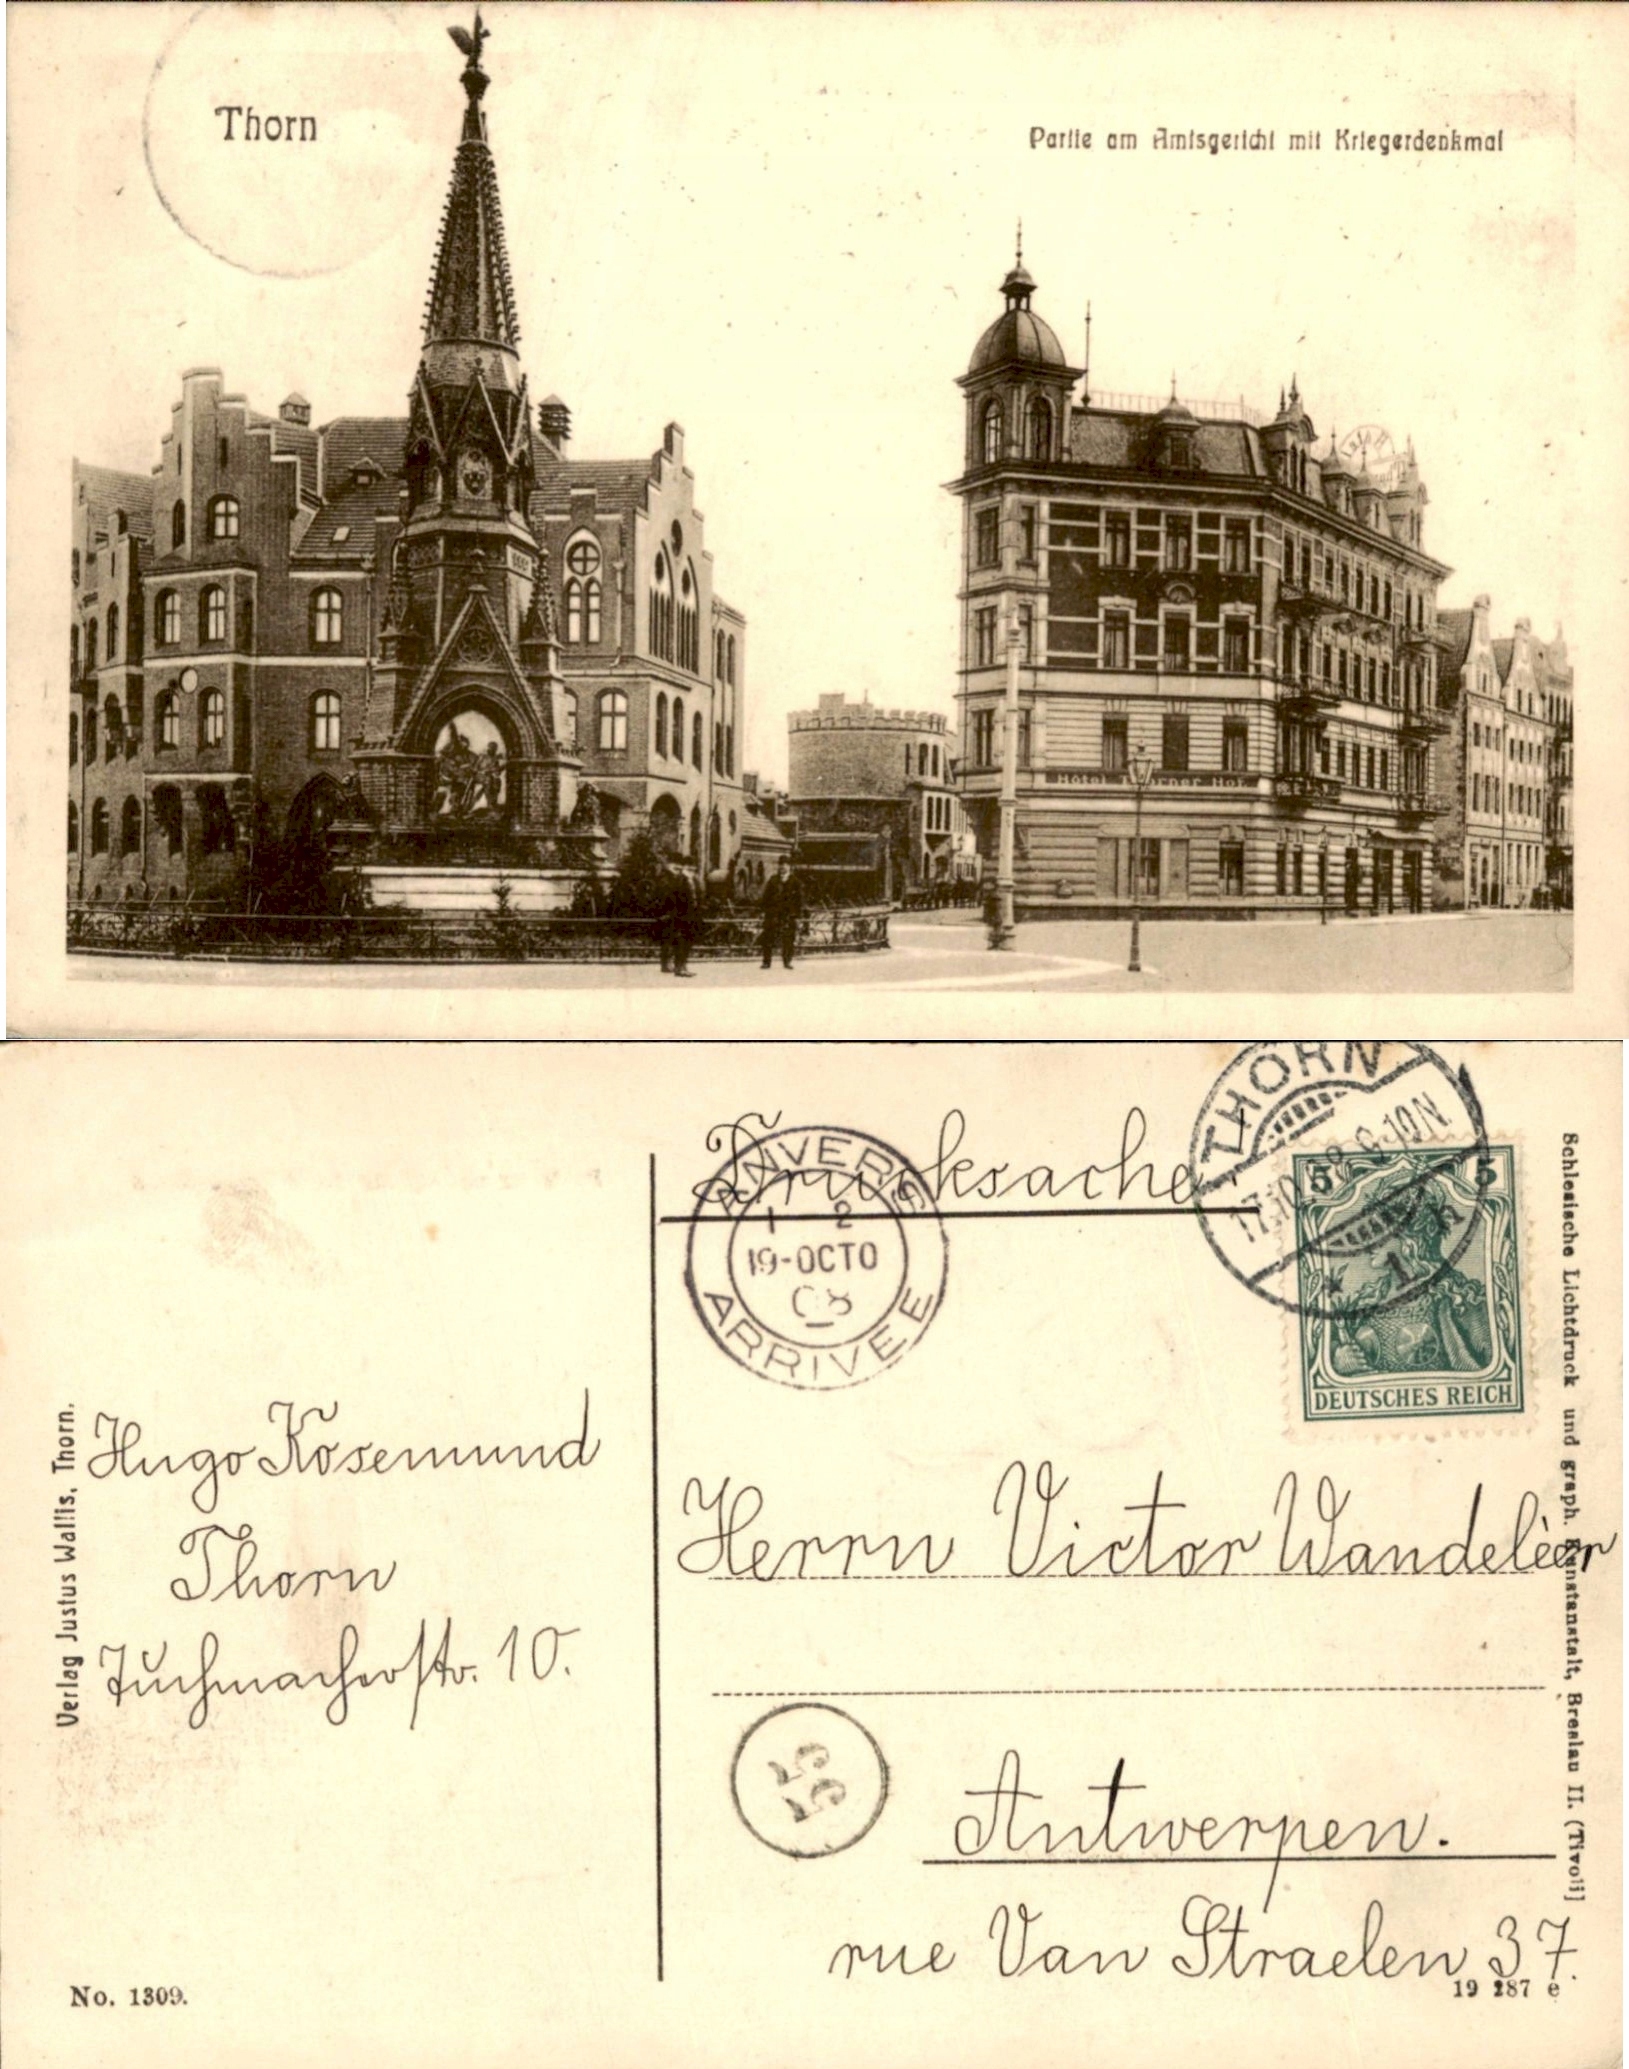 Thorn
Partie am Amtsgericht mit Kriegerdenkmal
Hôtel Thorner Hof
Drucksache
THORN
17.10.08 6-10N
* 1 h
5 5
DEUTSCHES REICH
ANVERS
1 2
19-OCTO
08
ARRIVEE
Hugo Kösemund
Thorn
Tuchmacherstr. 10.
Verlag Justus Wallis, Thorn.
Herrn Victor Wandeleèr
55
Antwerpen.
rue Van Straelen 37.
Schlesische Lichtdruck und graph. Kunstanstalt, Breslau II. (Tivoli]
No. 1309.
19 287 e